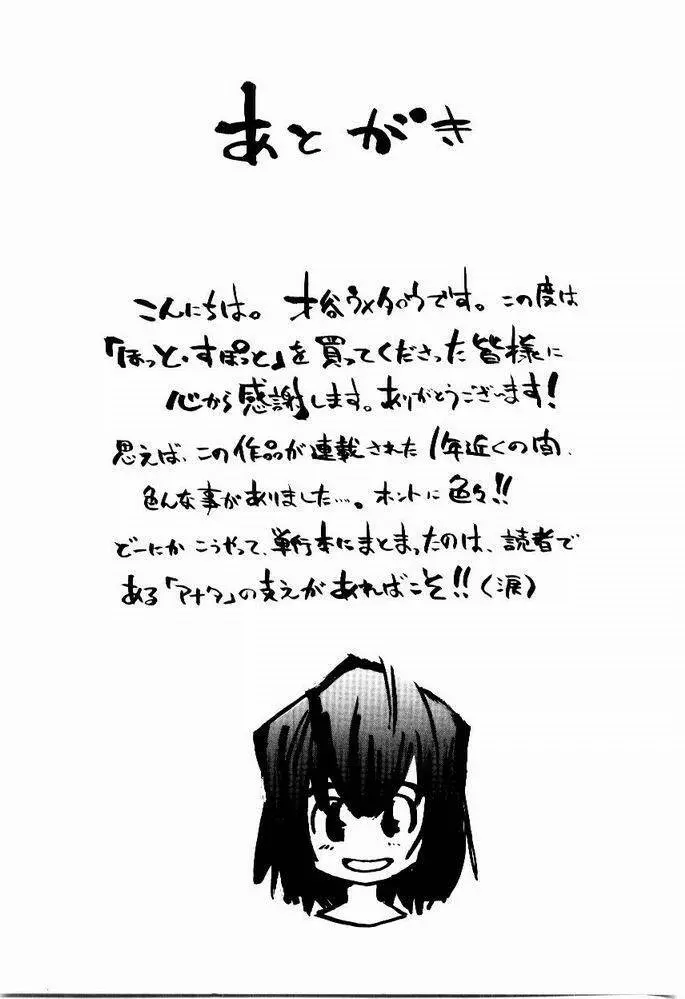 あとがき
こんにちは。才谷ウメタロウです。この度は
「ほっと・すぽっと」を買ってくださった皆様に
心から感謝します。ありがとうございます!
思えば、この作品が連載された1年近くの間、
色んな事がありました…。ホントに色々!!
どーにかこうやって、単行本にまとまったのは、読者で
ある「アナタ」の支えがあればこそ!!(涙)